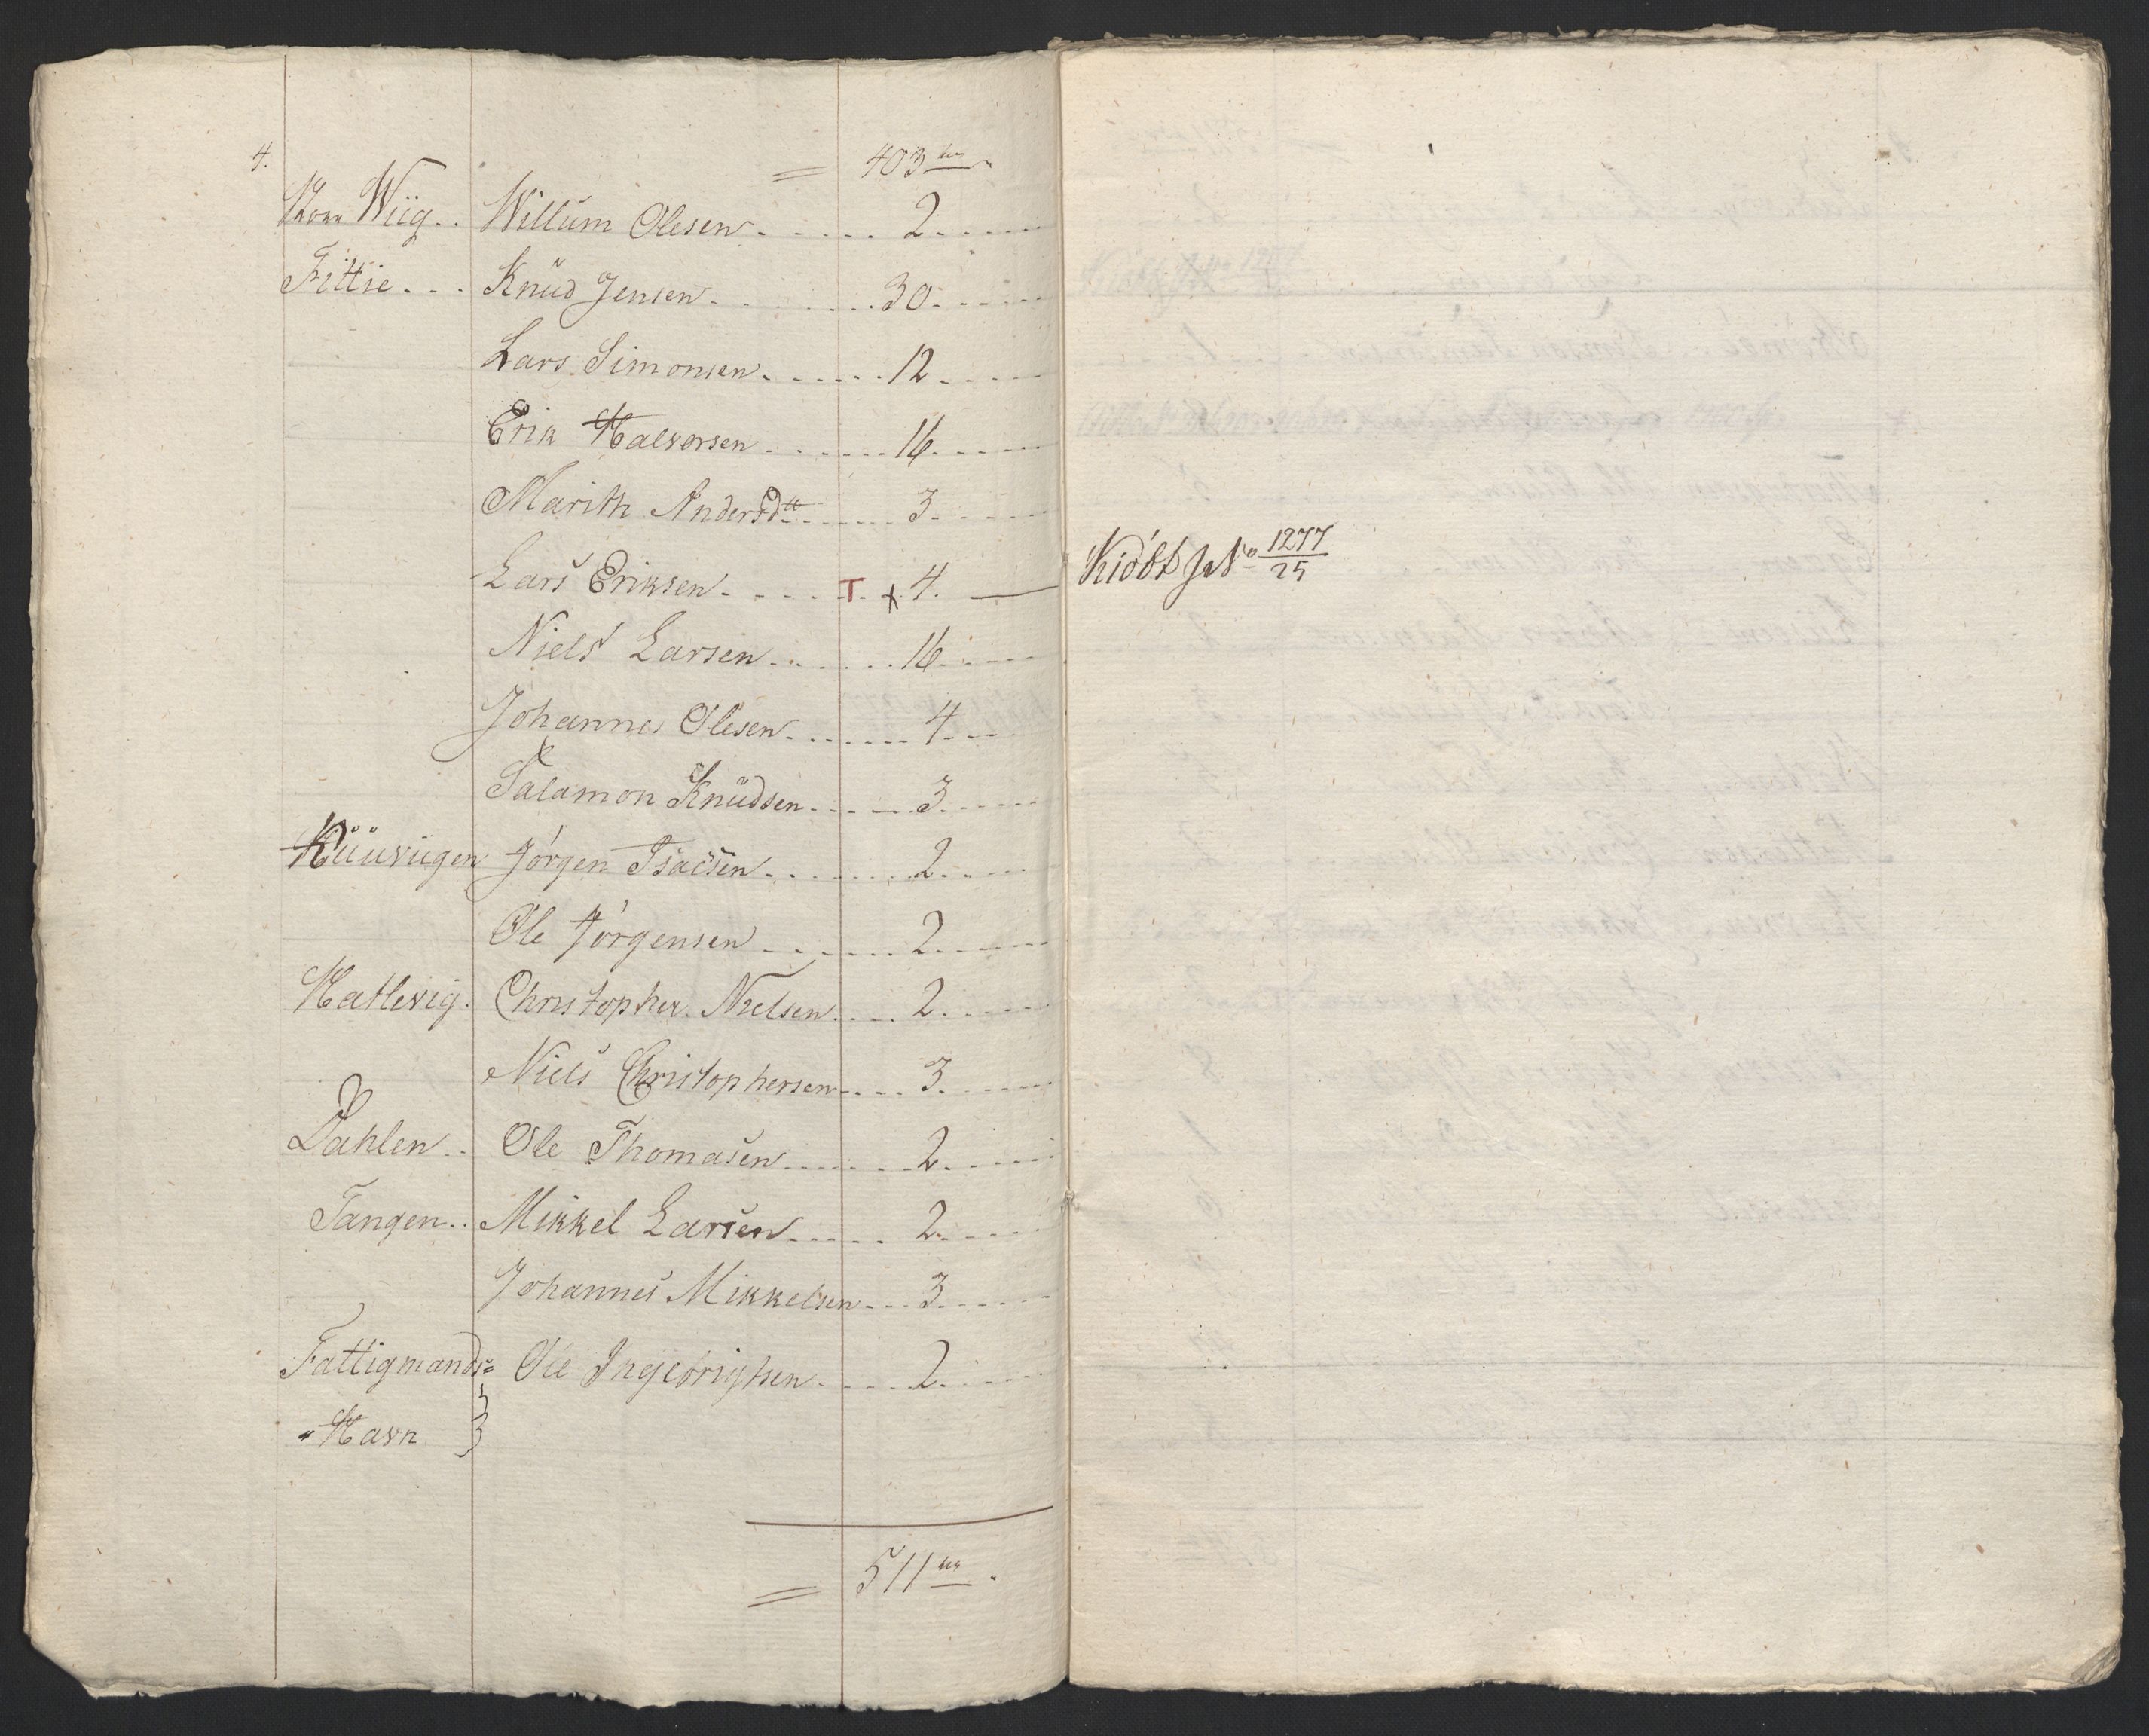 4.
= 403
Wiig.. Willum Olesen 2
Fittie... Knud Jensen 30
Lars Simonsen 12
Erik Halvorsen 16
Marith Andersdtt 3
Lars Eriksen T x 4. — Kiöbt J No 1277/25
Niels Larsen 16
Johannes Olesen 4
Salamon Knudsen 3
Jörgen Isacsen 2
Ole Jörgensen 2
Hatlevig. Christopher Nielsen 2
Niels Christophersen 3
Dahlen.. Ole Thomasen 2
Tangen.. Mikkel Larsen 2
Johannes Mikkelsen 3
Fattigmands= Ole Ingebrigtsen 2
Havn }
= 511